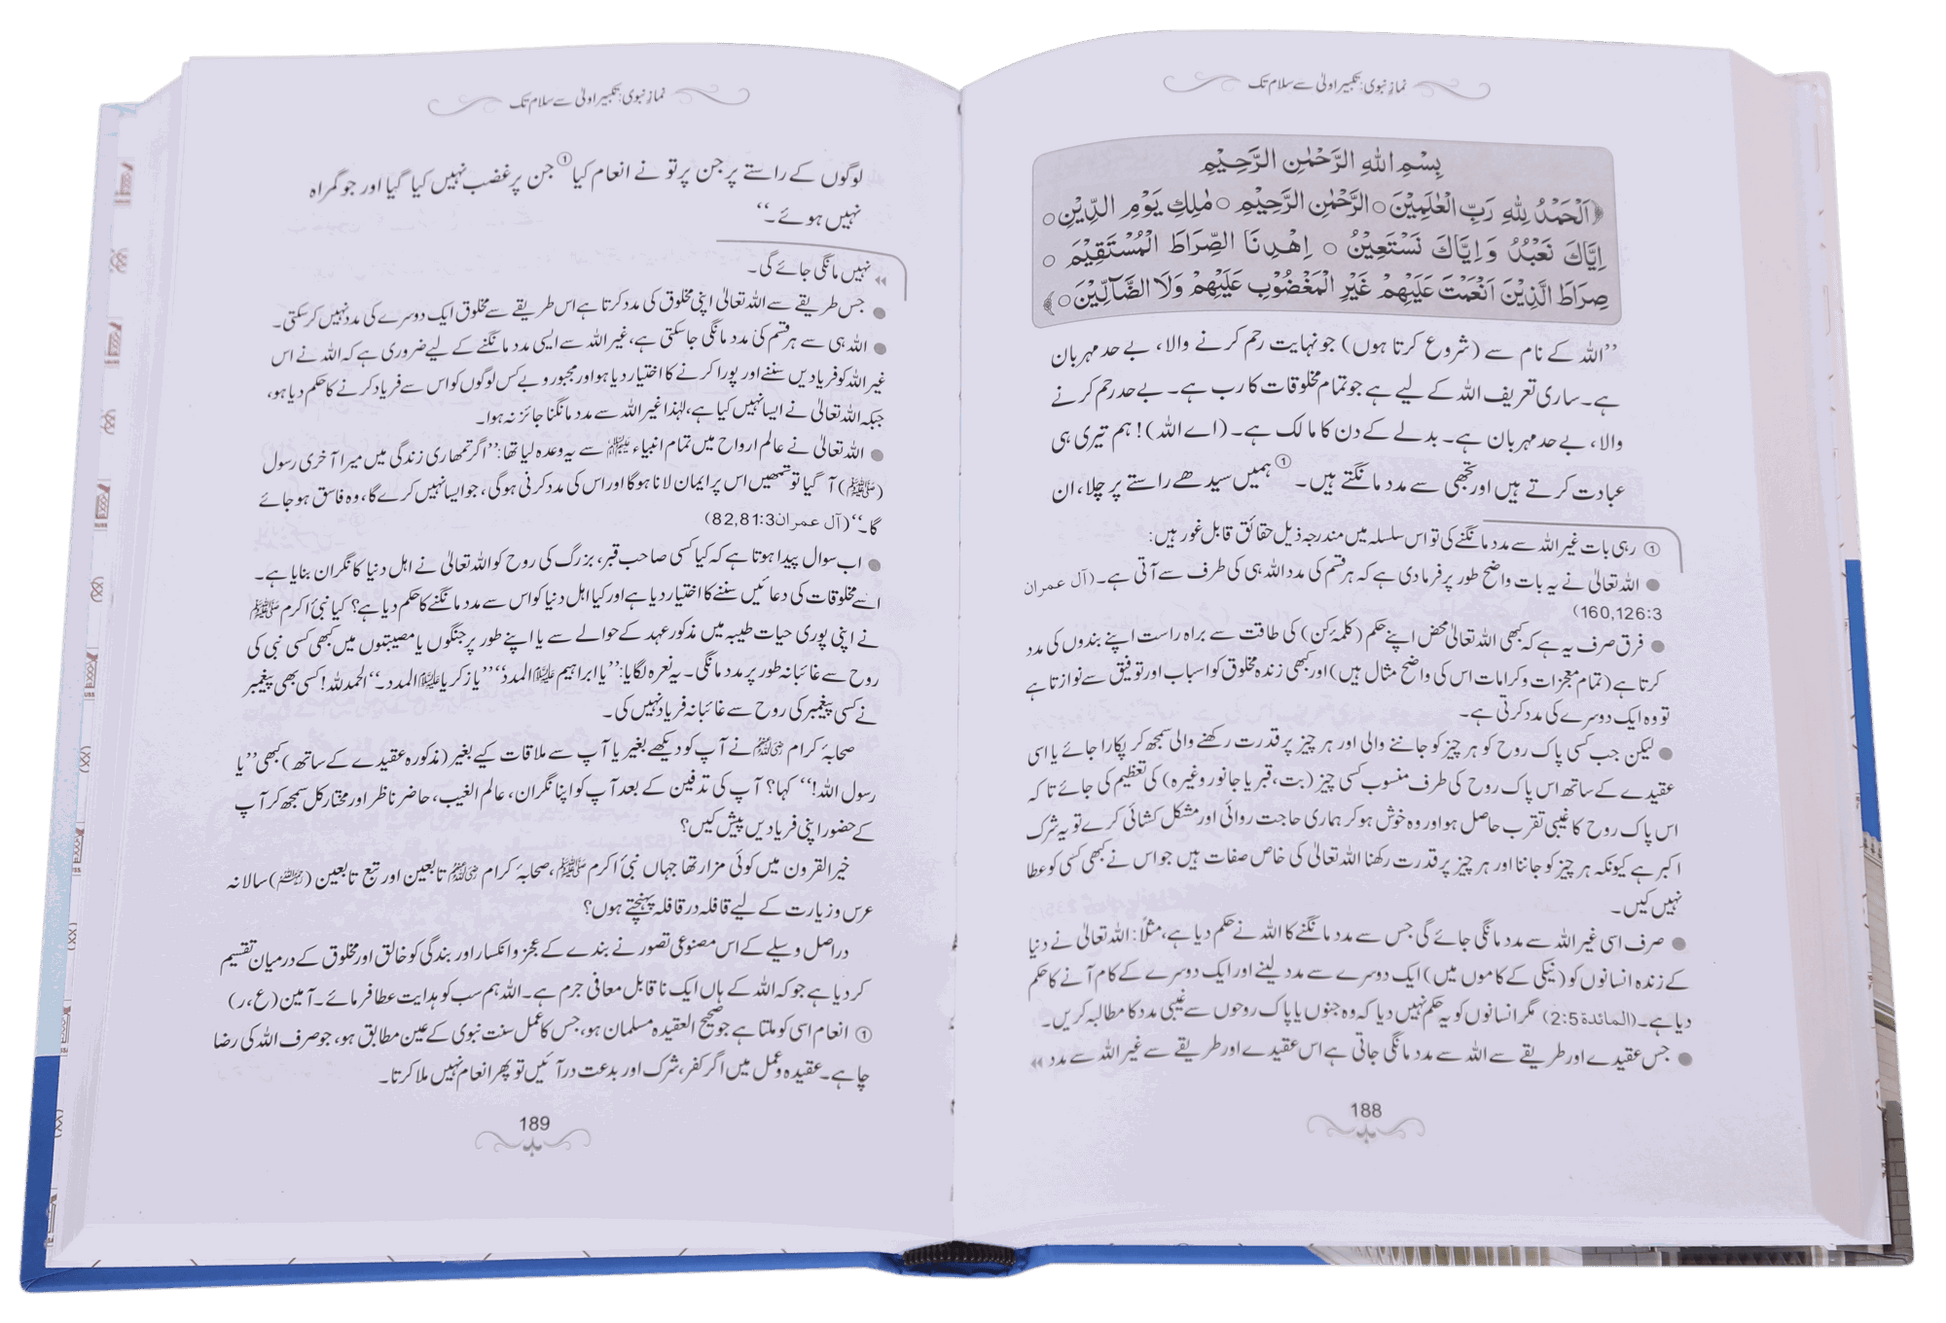 نماز نبوی: تکبیر اولیٰ سے سلام تک
بِسْمِ اللهِ الرَّحْمٰنِ الرَّحِيْمِ
﴿اَلْحَمْدُ لِلّٰهِ رَبِّ الْعٰلَمِيْنَ ○ الرَّحْمٰنِ الرَّحِيْمِ ○ مٰلِكِ يَوْمِ الدِّيْنِ ○
اِيَّاكَ نَعْبُدُ وَاِيَّاكَ نَسْتَعِيْنُ ○ اِهْدِنَا الصِّرَاطَ الْمُسْتَقِيْمَ ○
صِرَاطَ الَّذِيْنَ اَنْعَمْتَ عَلَيْهِمْ غَيْرِ الْمَغْضُوْبِ عَلَيْهِمْ وَلَا الضَّآلِّيْنَ ○﴾
”اللہ کے نام سے (شروع کرتا ہوں) جو نہایت رحم کرنے والا، بے حد مہربان
ہے۔ ساری تعریف اللہ کے لیے ہے جو تمام مخلوقات کا رب ہے۔ بے حد رحم کرنے
والا، بے حد مہربان ہے۔ بدلے کے دن کا مالک ہے۔ (اے اللہ)! ہم تیری ہی
عبادت کرتے ہیں اور تجھی سے مدد مانگتے ہیں۔ ① ہمیں سیدھے راستے پر چلا، ان
① رہی بات غیر اللہ سے مدد مانگنے کی تو اس سلسلہ میں مندرجہ ذیل حقائق قابل غور ہیں:
● اللہ تعالیٰ نے یہ بات واضح طور پر فرما دی ہے کہ ہر قسم کی مدد اللہ ہی کی طرف سے آتی ہے۔ (آل عمران
160,126:3)
● فرق صرف یہ ہے کہ کبھی اللہ تعالیٰ محض اپنے حکم (کلمۂ کن) کی طاقت سے براہ راست اپنے بندوں کی مدد
کرتا ہے (تمام معجزات و کرامات اس کی واضح مثال ہیں) اور کبھی زندہ مخلوق کو اسباب اور توفیق سے نوازتا ہے
تو وہ ایک دوسرے کی مدد کرتی ہے۔
● لیکن جب کسی پاک روح کو ہر چیز کو جاننے والی اور ہر چیز پر قدرت رکھنے والی سمجھ کر پکارا جائے یا اسی
عقیدے کے ساتھ اس پاک روح کی طرف منسوب کسی چیز (بت، قبر یا جانور وغیرہ) کی تعظیم کی جائے تاکہ
اس پاک روح کا غیبی تقرب حاصل ہو اور وہ خوش ہو کر ہماری حاجت روائی اور مشکل کشائی کرے تو یہ شرک
اکبر ہے کیونکہ ہر چیز کو جاننا اور ہر چیز پر قدرت رکھنا اللہ تعالیٰ کی خاص صفات ہیں جو اس نے کبھی کسی کو عطا
نہیں کیں۔
● صرف اسی غیر اللہ سے مدد مانگی جائے گی جس سے مدد مانگنے کا اللہ نے حکم دیا ہے، مثلاً: اللہ تعالیٰ نے دنیا
کے زندہ انسانوں کو (نیکی کے کاموں میں) ایک دوسرے سے مدد لینے اور ایک دوسرے کے کام آنے کا حکم
دیا ہے۔ (المائدة 2:5) مگر انسانوں کو یہ حکم نہیں دیا کہ وہ جنوں یا پاک روحوں سے غیبی مدد کا مطالبہ کریں۔
● جس عقیدے اور طریقے سے اللہ سے مدد مانگی جاتی ہے اس عقیدے اور طریقے سے غیر اللہ سے مدد
188
نماز نبوی: تکبیر اولیٰ سے سلام تک
لوگوں کے راستے پر جن پر تو نے انعام کیا ① جن پر غضب نہیں کیا گیا اور جو گمراہ
نہیں ہوئے۔“
نہیں مانگی جائے گی۔
● جس طریقے سے اللہ تعالیٰ اپنی مخلوق کی مدد کرتا ہے اس طریقے سے مخلوق ایک دوسرے کی مدد نہیں کر سکتی۔
● اللہ ہی سے ہر قسم کی مدد مانگی جا سکتی ہے، غیر اللہ سے ایسی مدد مانگنے کے لیے ضروری ہے کہ اللہ نے اس
غیر اللہ کو فریادیں سننے اور پورا کرنے کا اختیار دیا ہو اور مجبور و بے کس لوگوں کو اس سے فریاد کرنے کا حکم دیا ہو،
جبکہ اللہ تعالیٰ نے ایسا نہیں کیا ہے، لہٰذا غیر اللہ سے مدد مانگنا جائز نہ ہوا۔
● اللہ تعالیٰ نے عالم ارواح میں تمام انبیاء سے یہ وعدہ لیا تھا: ”اگر تمھاری زندگی میں میرا آخری رسول
(ﷺ) آ گیا تو تمھیں اس پر ایمان لانا ہوگا اور اس کی مدد کرنی ہوگی، جو ایسا نہیں کرے گا، وہ فاسق ہو جائے
گا۔“ (آل عمران 82,81:3)
● اب سوال پیدا ہوتا ہے کہ کیا کسی صاحب قبر، بزرگ کی روح کو اللہ تعالیٰ نے اہل دنیا کا نگران بنایا ہے۔
اسے مخلوقات کی دعائیں سننے کا اختیار دیا ہے اور کیا اہل دنیا کو اس سے مدد مانگنے کا حکم دیا ہے؟ کیا نبی اکرم ﷺ
نے اپنی پوری حیات طیبہ میں مذکور عہد کے حوالے سے یا اپنے طور پر جنگوں یا مصیبتوں میں کبھی کسی نبی کی
روح سے غائبانہ طور پر مدد مانگی۔ یہ نعرہ لگایا: ”یا ابراہیم المدد“ ”یا زکریا المدد۔“ الحمد للہ! کسی بھی پیغمبر
نے کسی پیغمبر کی روح سے غائبانہ فریاد نہیں کی۔
صحابۂ کرام نے آپ کو دیکھے بغیر یا آپ سے ملاقات کیے بغیر (مذکورہ عقیدے کے ساتھ) کبھی ”یا
رسول اللہ!“ کہا؟ آپ کی تدفین کے بعد آپ کو اپنا نگران، عالم الغیب، حاضر ناظر اور مختار کل سمجھ کر آپ
کے حضور اپنی فریادیں پیش کیں؟
خیر القرون میں کوئی مزار تھا جہاں نبی اکرم ﷺ، صحابۂ کرام تابعین اور تبع تابعین سالانہ
عرس و زیارت کے لیے قافلہ در قافلہ پہنچتے ہوں؟
دراصل وسیلے کے اس مصنوعی تصور نے بندے کے عجز و انکسار اور بندگی کو خالق اور مخلوق کے درمیان تقسیم
کر دیا ہے جو کہ اللہ کے ہاں ایک ناقابل معافی جرم ہے۔ اللہ ہم سب کو ہدایت عطا فرمائے۔ آمین (ع، ر)
① انعام اسی کو ملتا ہے جو صحیح العقیدہ مسلمان ہو، جس کا عمل سنت نبوی کے عین مطابق ہو، جو صرف اللہ کی رضا
چاہے۔ عقیدہ و عمل میں اگر کفر، شرک اور بدعت در آئیں تو پھر انعام نہیں ملا کرتا۔
189